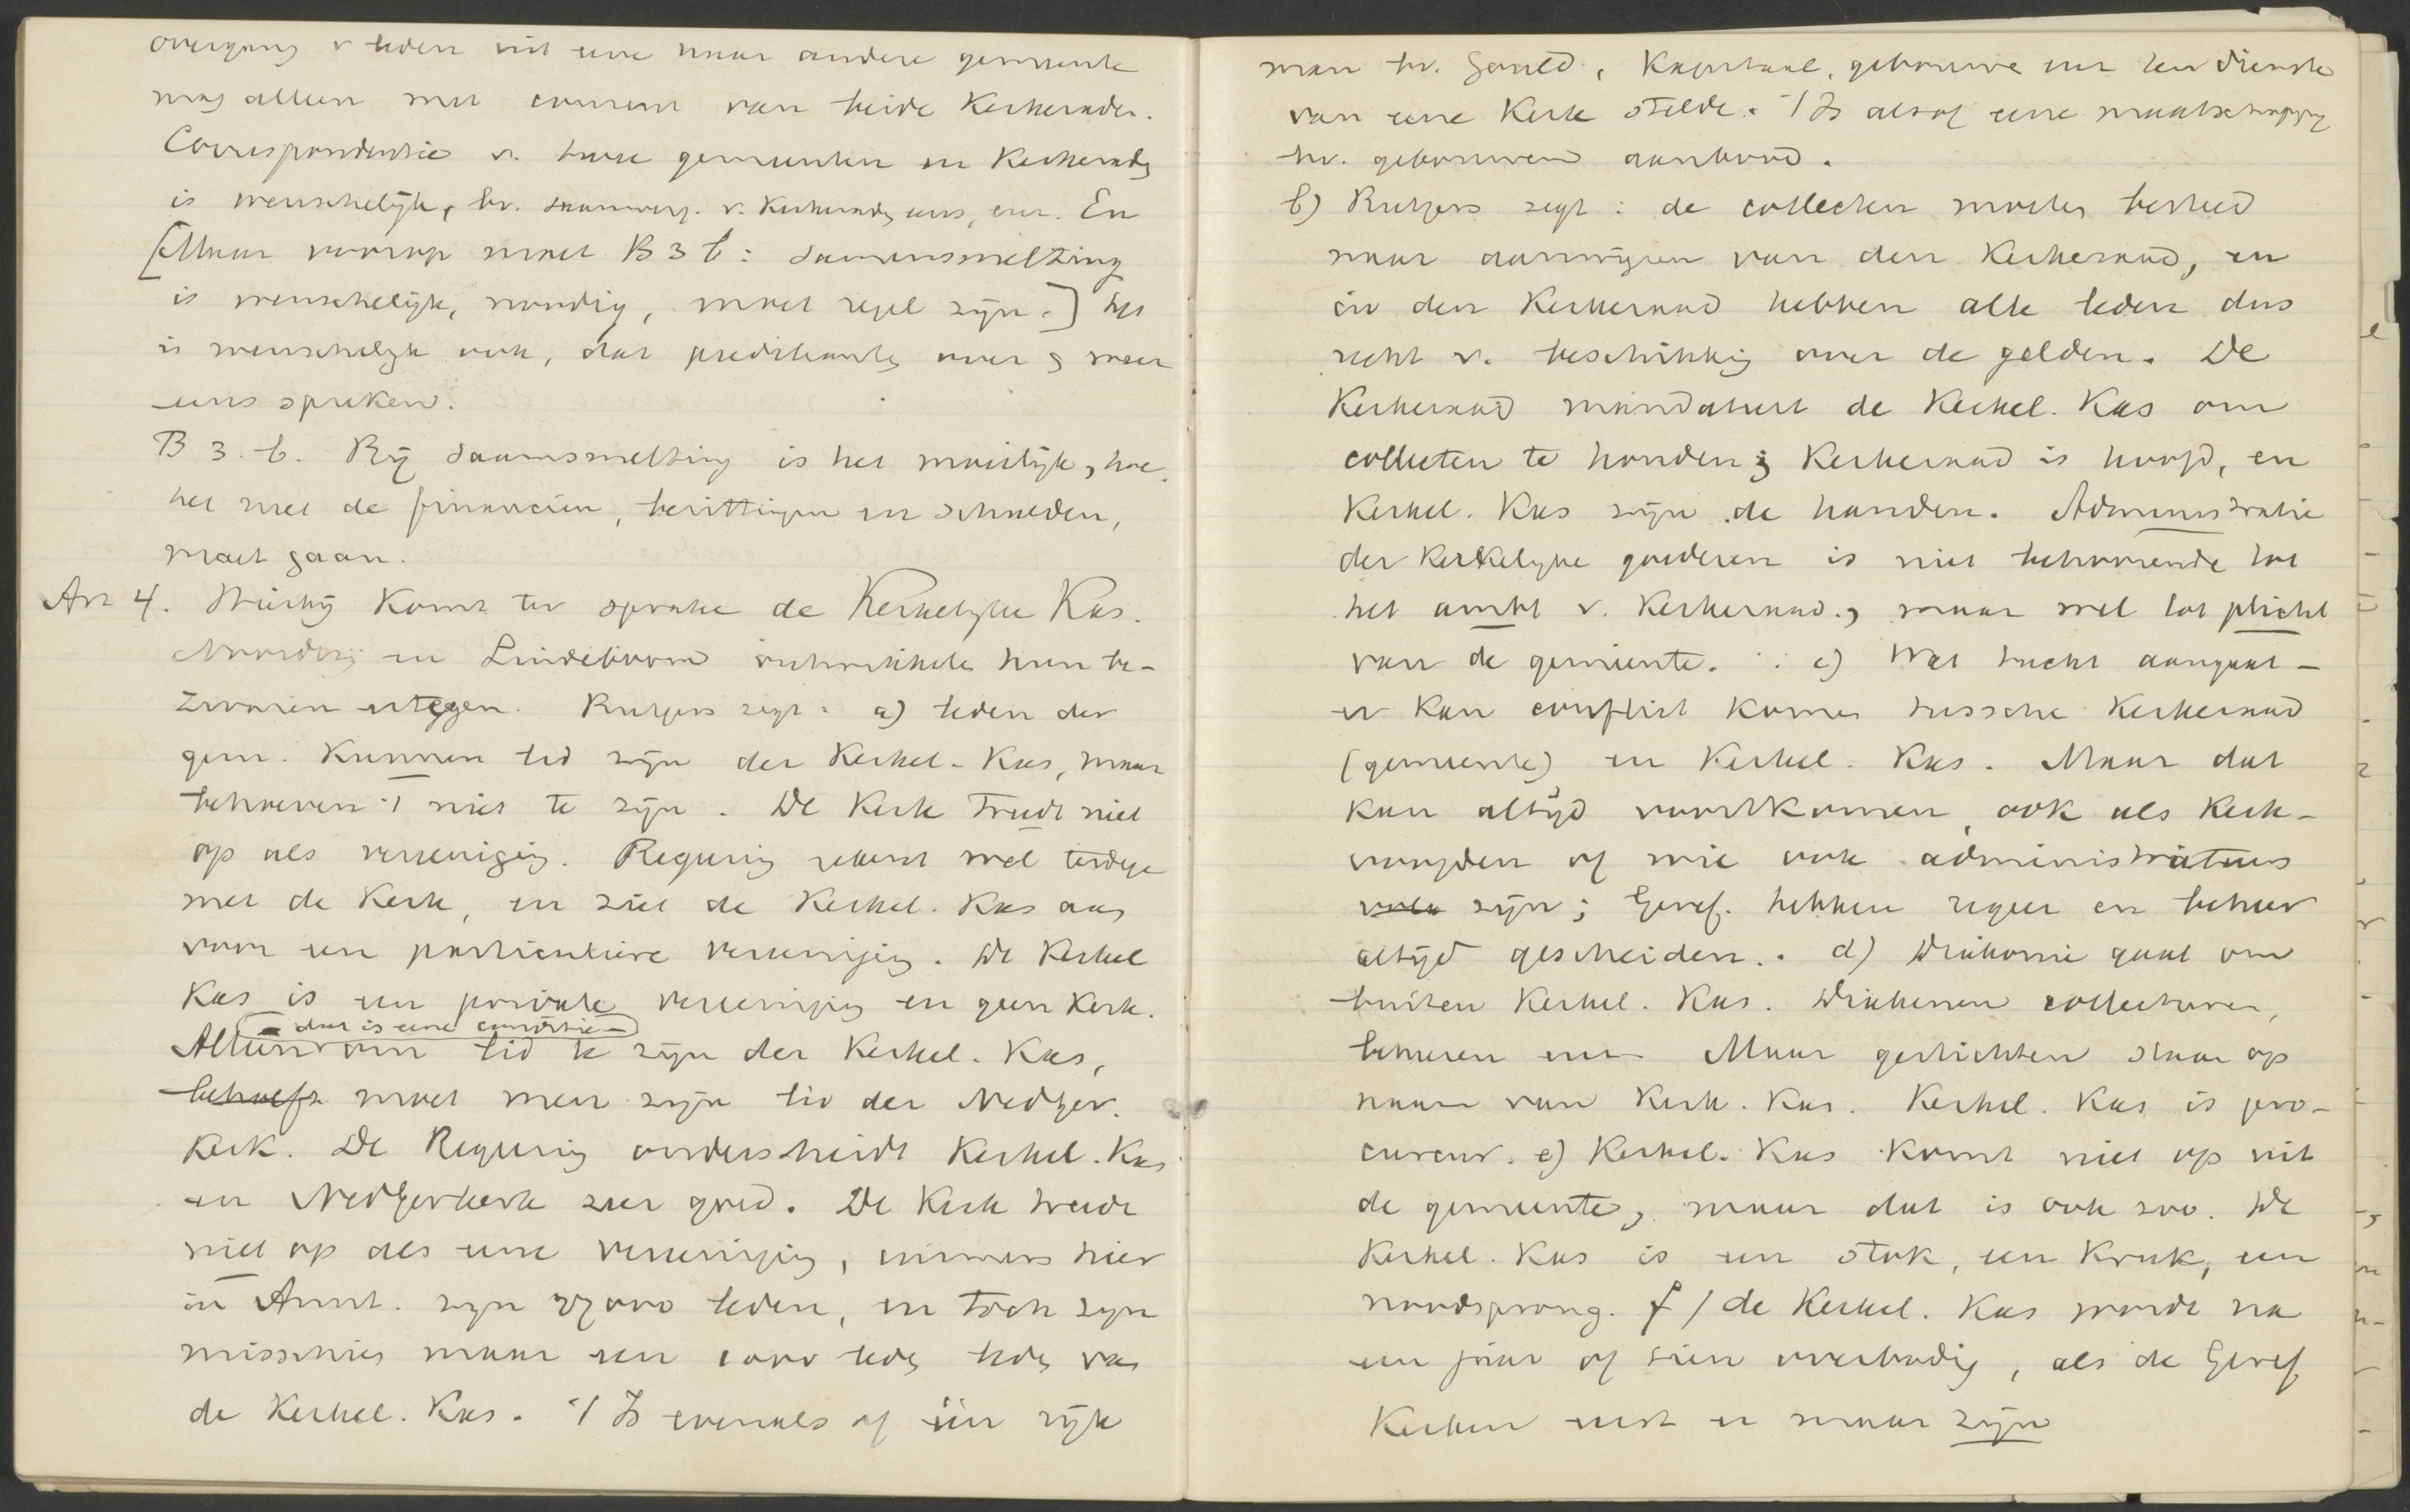 overgang v leden uit eene naar andere gemeente
mag alleen met consent van beide Kerkeraden.
Correspondentie v. twee gemeenten en Kerkerads
is wenschelijk, bv. saamverg. v. Kerkerads eens, enz. En
[Maar voorop moet B 3 b: samensmelting
is wenschelijk, noodig, moet regel zijn.] Het
is wenschelijk ook, dat predikants over & weer
eens spreken.
B 3. b. Bij saamsmelting is het moeilijk, hoe
het met de financiën, bezittingen en schulden,
moet gaan.
Art 4. Hierbij komt ter sprake de Kerkelijke Kas.
Noordzij en Lindeboom ontwikkelen hun be-
zwaren ertegen. Rutgers zegt: a) leden der
gem. kunnen lid zijn der Kerkel. Kas, maar
behoeven 't niet te zijn. De Kerk treedt niet
op als vereeniging. Regering rekent wel terdege
met de Kerk, en ziet de Kerkel. Kas aan
voor een particuliere vereeniging. De Kerkel
Kas is een private vereeniging en geen Kerk.
– dat is eene conditie –
Alleen om lid te zijn der Kerkel. Kas,
behoeft moet men zijn lid der NedGer.
Kerk. De Regering onderscheidt Kerkel. Kas
en NedGerkerk zeer goed. De Kerk treedt
niet op als eene vereeniging, immers hier
in Amst. zijn 27000 leden, en toch zijn
misschien maar een 1000 leden leden van
de Kerkel. Kas. 't Is evenals of één rijk
man bv. Gould, Kapitaal, gebouwen enz ten dienste
van eene Kerk stelde. 't Is alsof eene maatschappij
bv. gebouwen aanbood.
b) Rutgers zegt: de collecten worden besteed
naar aanwijzen van den Kerkeraad, en
in den Kerkeraad hebben alle leden dus
recht v. beschikking over de gelden. De
Kerkeraad mandateert de Kerkel. Kas om
collecten te houden; Kerkeraad is hoofd, en
Kerkel. Kas zijn de handen. Administratie
der Kerkelijke goederen is niet behoorende tot
het ambt v. Kerkeraad, maar wel tot plicht
van de gemeente. c) Wat tucht aangaat –
er kan conflict komen tusschen Kerkeraad
(gemeente) en Kerkel. Kas. Maar dat
kan altijd voorkomen, ook als Kerk-
voogden of wie ook administrateurs
zijn; Geref. hebben regeer en beheer
altijd gescheiden. d) Diakonie gaat om
buiten Kerkel. Kas. Diakenen collecteeren,
beheeren enz. Maar gestichten staan op
naam van Kerk. Kas. Kerkel. Kas is pro-
cureur. e) Kerkel. Kas komt niet op uit
de gemeente, maar dat is ook zoo. De
Kerkel. Kas is een stok, een Kruk, een
noodsprong. f) de Kerkel. Kas wordt na
een jaar of tien overbodig, als de Geref
Kerken eerst er maar zijn